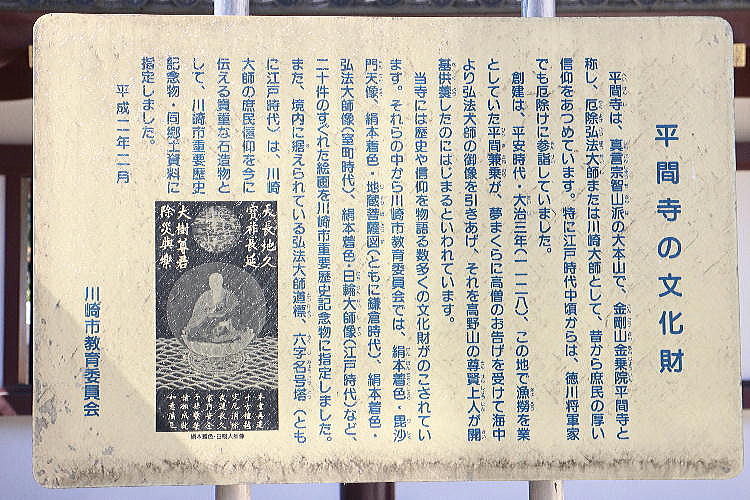 平間寺の文化財
平間寺は、真言宗智山派の大本山で、金剛山金乗院平間寺と
称し、厄除弘法大師または川崎大師として、昔から庶民の厚い
信仰をあつめています。特に江戸時代中頃からは、徳川将軍家
でも厄除けに参詣していました。
創建は、平安時代・大治三年(一一二八)、この地で漁撈を業
としていた平間兼乗が、夢まくらに高僧のお告げを受けて海中
より弘法大師の御像を引きあげ、それを高野山の尊賢上人が開
基供養したのにはじまるといわれています。
当寺には歴史や信仰を物語る数多くの文化財がのこされてい
ます。それらの中から川崎市教育委員会では、絹本着色・毘沙
門天像、絹本着色・地蔵菩薩図(ともに鎌倉時代)、絹本着色・
弘法大師像(室町時代)、絹本着色・日輪大師像(江戸時代)など、
二十件のすぐれた絵画を川崎市重要歴史記念物に指定しました。
また、境内に据えられている弘法大師道標、六字名号塔(とも
に江戸時代)は、川崎
大師の庶民信仰を今に
伝える貴重な石造物と
して、川崎市重要歴史
記念物・同郷土資料に
指定しました。
平成二年二月
川崎市教育委員会
天長地久
寶祚長延
大樹尊君
除災與樂
絹本着色・日輪大師像